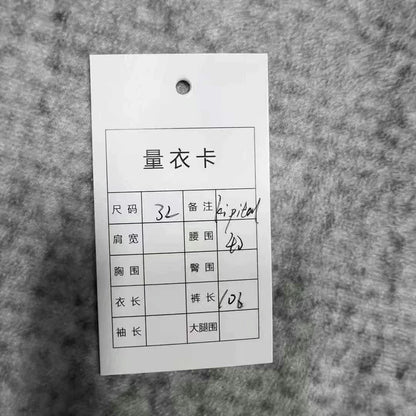 量衣卡
尺码 32 备注
肩宽 腰围 40
胸围 臀围
衣长 裤长 106
袖长 大腿围